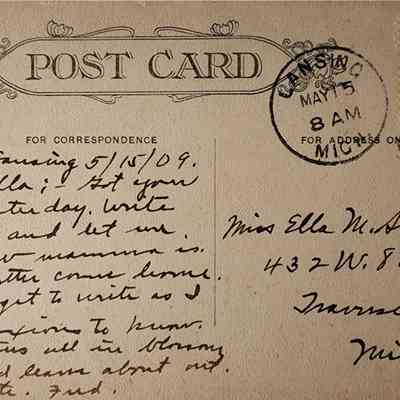 POST CARD
LANSING
MAY 15
8 AM
MICH
FOR CORRESPONDENCE
FOR ADDRESS ON
ansing 5/15/09.
lla;- Got your
terday. Write
and let me
mamma is.
come home.
get to write as I
xious to know.
all in blossom
d leaves about out.
te. Fred.
Miss Ella M. S
432 W. 8
Traverse
Mi